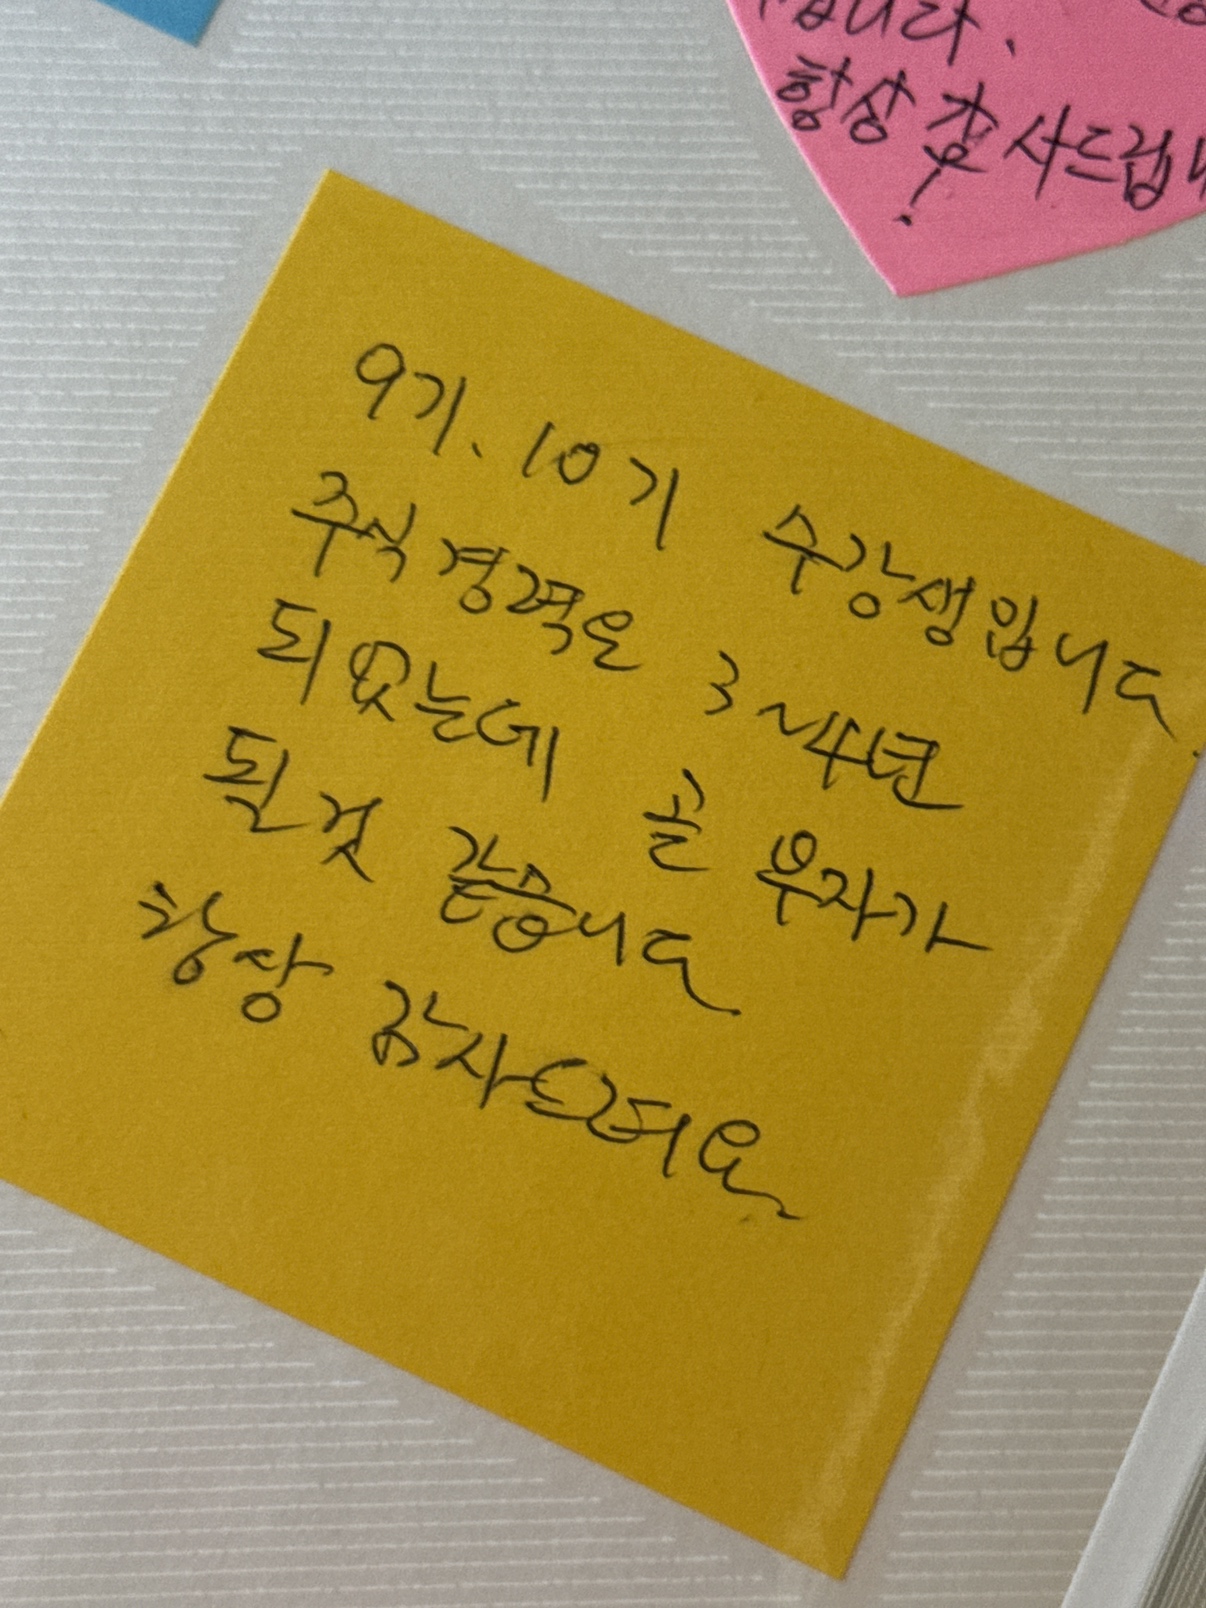 니다.
항상 감사드립니
!
9기. 10기 수강생입니다.
주식경력은 3~4년
되었는데 곧 부자가
될것 같습니다
항상 감사드려요